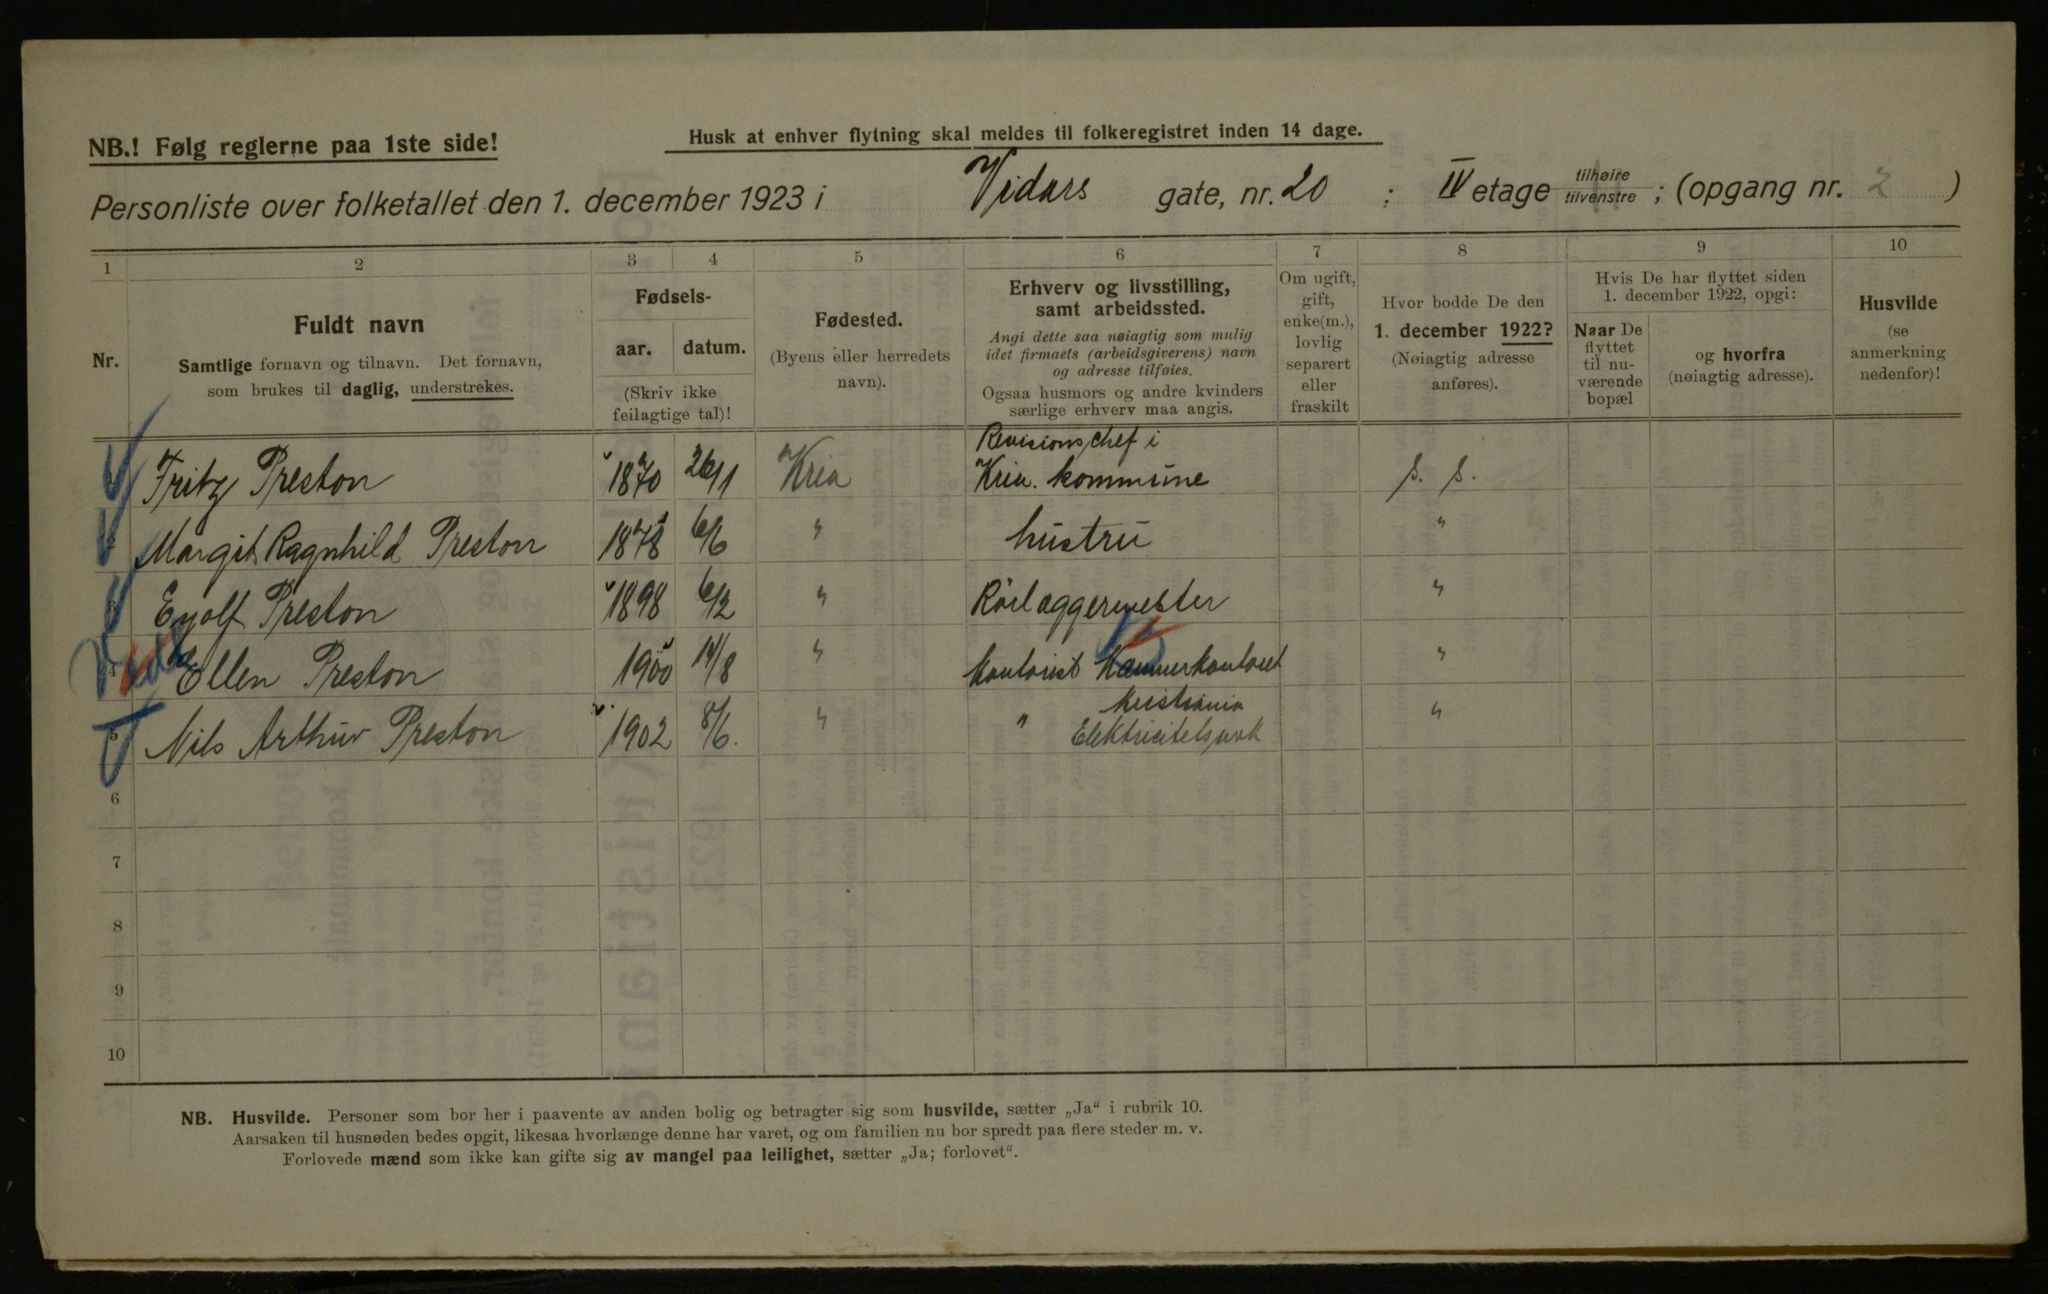 NB.! Følg reglerne paa 1ste side!
Husk at enhver flytning skal meldes til folkeregistret inden 14 dage.
Personliste over folketallet den 1. december 1923 i Vidars gate, nr. 20 ; IV etage tilhøire tilvenstre ; (opgang nr. 2 )
1 2 3 4 5 6 7 8 9 10
Nr.
Fuldt navn
Samtlige fornavn og tilnavn. Det fornavn,
som brukes til daglig, understrekes.
Fødsels-
aar. datum.
(Skriv ikke
feilagtige tal)!
Fødested.
(Byens eller herredets
navn).
Erhverv og livsstilling,
samt arbeidssted.
Angi dette saa nøiagtig som mulig
idet firmaets (arbeidsgiverens) navn
og adresse tilføies.
Ogsaa husmors og andre kvinders
særlige erhverv maa angis.
Om ugift,
gift,
enke(m.),
lovlig
separert
eller
fraskilt
Hvor bodde De den
1. december 1922?
(Nøiagtig adresse
anføres).
Hvis De har flyttet siden
1. december 1922, opgi:
Naar De
flyttet
til nu-
værende
bopæl
og hvorfra
(nøiagtig adresse).
Husvilde
(se
anmerkning
nedenfor)!
Revisionschef i
Fritz Preston 1870 26/11 Kria Kria. kommune s. s.
Margit Ragnhild Preston 1878 6/6 " hustru "
3 Eyolf Preston 1898 6/2 " Rörlæggermester "
4 Ellen Preston 1900 14/8 " Kontorist Kæmnerkontoret "
Kristiania
5 Nils Arthur Preston 1902 8/6. " " Elektricitetsverk "
6
7
8
9
10
NB. Husvilde. Personer som bor her i paavente av anden bolig og betragter sig som husvilde, sætter „Ja“ i rubrik 10.
Aarsaken til husnøden bedes opgit, likesaa hvorlænge denne har varet, og om familien nu bor spredt paa flere steder m. v.
Forlovede mænd som ikke kan gifte sig av mangel paa leilighet, sætter „Ja; forlovet“.